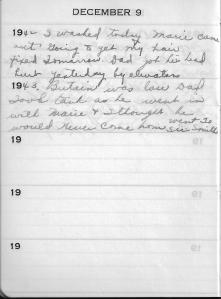 DECEMBER 9
1942 I washed today Marie came
out Going to get my hair
fixed tomorrow. Dad got his hed
hurt yesterday by elevators
1943. Britain was low Dad
took thick as he went in
with Marie & I thought he
would never come home went to
19
19
19